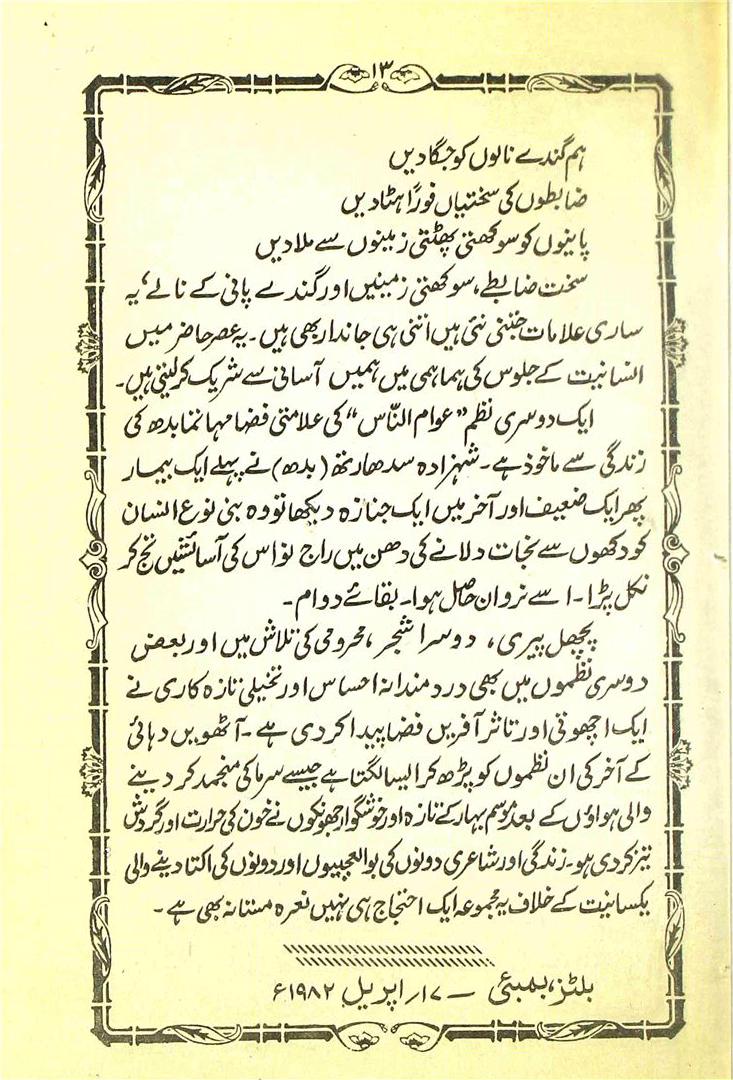 ۱۳
ہم گندے نالوں کو جگا دیں
ضابطوں کی سختیاں فوراً ہٹا دیں
پانیوں کو سوکھتی پھٹتی زمینوں سے ملا دیں
سخت ضابطے، سوکھتی زمینیں اور گندے پانی کے نالے، یہ
ساری علامات جتنی نئی ہیں اتنی ہی جاندار بھی ہیں۔ یہ عصر حاضر میں
انسانیت کے جلوس کی ہماہمی میں ہمیں آسانی سے شریک کر لیتی ہیں۔
ایک دوسری نظم ”عوام النّاس“ کی علامتی فضا مہاتما بدھ کی
زندگی سے ماخوذ ہے۔ شہزادہ سدھارتھ (بدھ) نے پہلے ایک بیمار
پھر ایک ضعیف اور آخر میں ایک جنازہ دیکھا تو وہ بنی نوع انسان
کو دکھوں سے نجات دلانے کی دھن میں راج نواس کی آسائشیں تج کر
نکل پڑا۔ اسے نروان حاصل ہوا۔ بقائے دوام۔
پچھل پیری، دوسرا شجر، محرومی کی تلاش میں اور بعض
دوسری نظموں میں بھی دردمندانہ احساس اور تخیلی تازہ کاری نے
ایک اچھوتی اور تاثر آفریں فضا پیدا کر دی ہے۔ آٹھویں دہائی
کے آخر کی ان نظموں کو پڑھ کر ایسا لگتا ہے جیسے سرما کی منجمد کر دینے
والی ہواؤں کے بعد موسم بہار کے تازہ اور خوشگوار جھونکوں نے خون کی حرارت اور گردش
تیز کر دی ہو۔ زندگی اور شاعری دونوں کی بوالعجبیوں اور دونوں کی اکتا دینے والی
یکسانیت کے خلاف یہ مجموعہ ایک احتجاج ہی نہیں نعرہ مستانہ بھی ہے۔
بلٹز، بمبئی — ۱۷؍ اپریل ۱۹۸۲ء